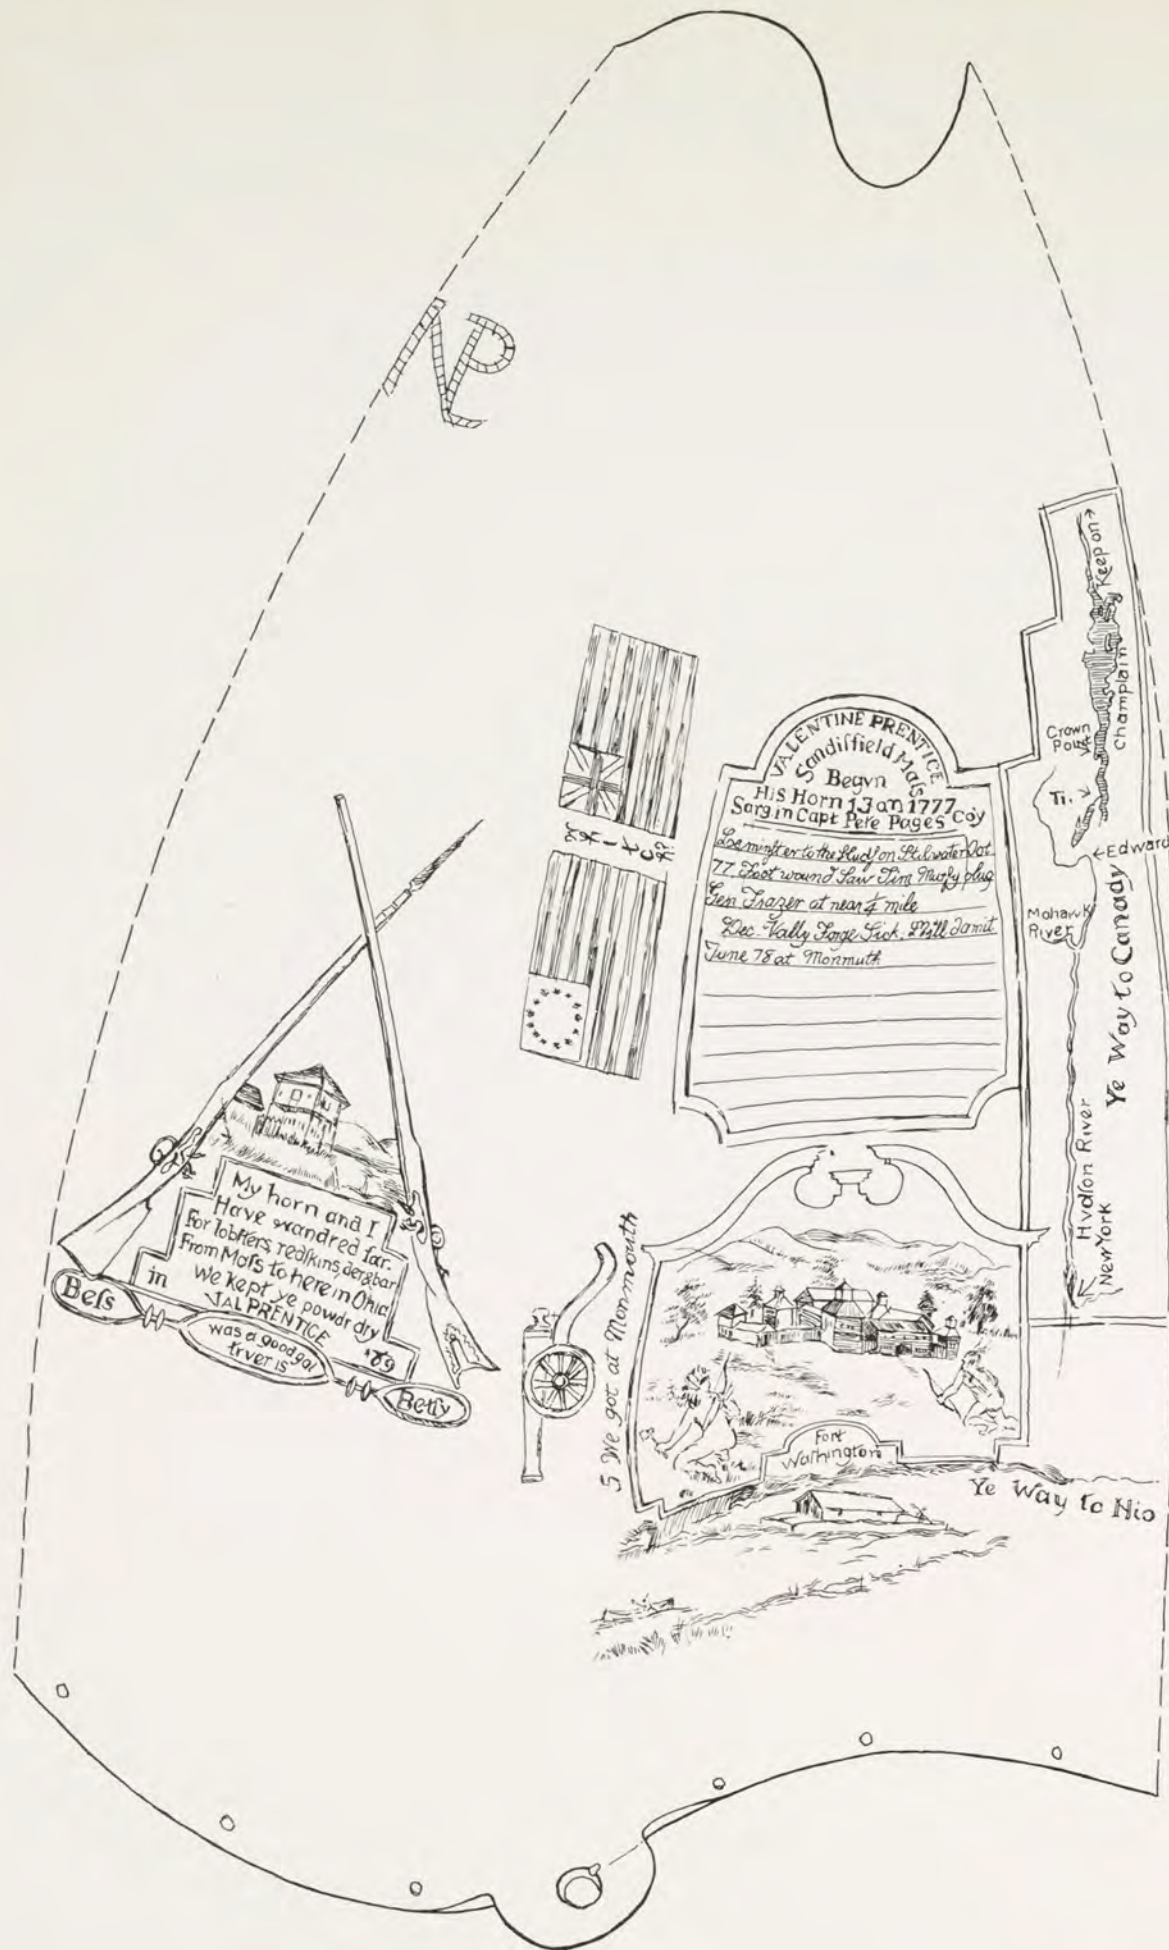 VP
VALENTINE PRENTICE
Sandisfield Mass
Begvn
His Horn 1 Jan 1777
Sarg. in Capt Pete Pages Coy
Leominster to the Hudson Stilwater Oct
77. Foot wound Saw Tim Murfy plug
Gen Frazer at near ¼ mile
Dec. Vally Forge Sick. Still damit
June 78 at Monmuth
Keep on →
Champlain
Crown
Point
Ti.
← Edward
Mohawk
River
Ye Way to Canady
Hvdson River
New York
My horn and I
Have wandred far.
For lobsters, redskins, der & bar
From Mass to here in Ohio
We kept ye powdr dry
in VAL PRENTICE '89
Bess
was a good gal
trver is
Betsy
5 We got at Monmouth
Fort
Washington
Ye Way to Hio